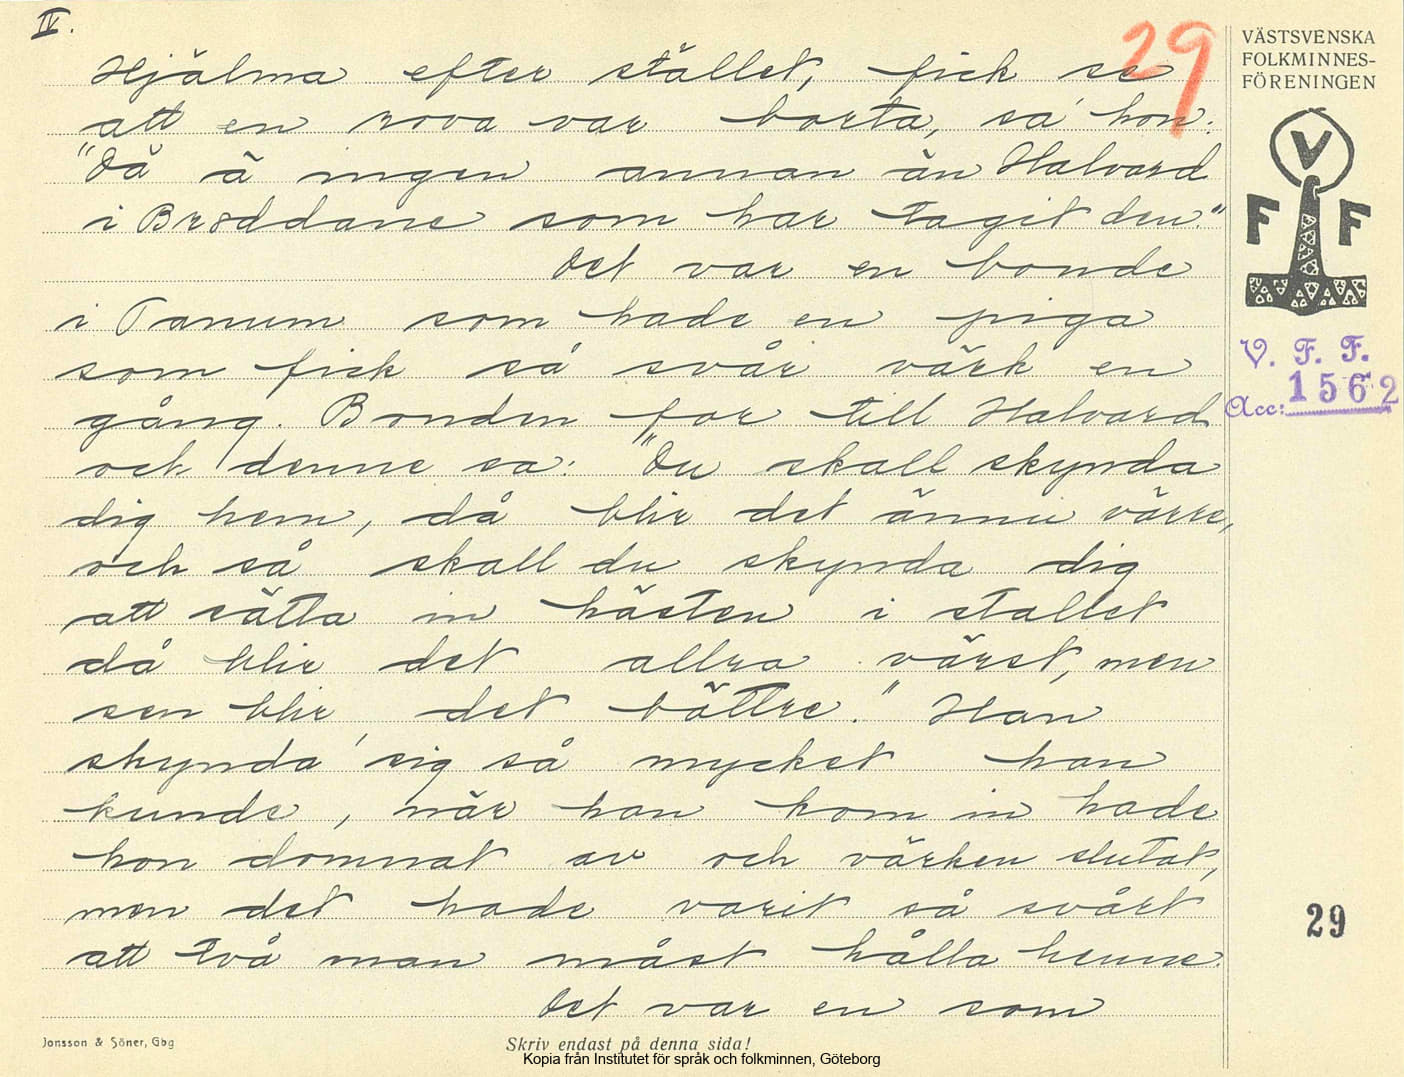 IV.
29
Hjälma efter stället, fick se
att en rova var borta, sa' hon:
"Då ä ingen annan än Halvard
i Bröddane som har tagit den."
Det var en bonde
i Tanum som hade en piga
som fick så svår värk en
gång. Bonden for till Halvard
och denne sa: "Du skall skynda
dig hem, då blir det ännu värre,
och så skall du skynda dig
att sätta in hästen i stallet
då blir det allra värst, men
sen blir det bättre." Han
skynda' sig så mycket han
kunde, när han kom in hade
hon domnat av och värken slutat,
men det hade varit så svårt
att två man måst hålla henne.
Det var en som
VÄSTSVENSKA
FOLKMINNES-
FÖRENINGEN
V
F F
V. F. F.
Acc: 1562
29
Jonsson & Söner, Gbg
Skriv endast på denna sida!
Kopia från Institutet för språk och folkminnen, Göteborg